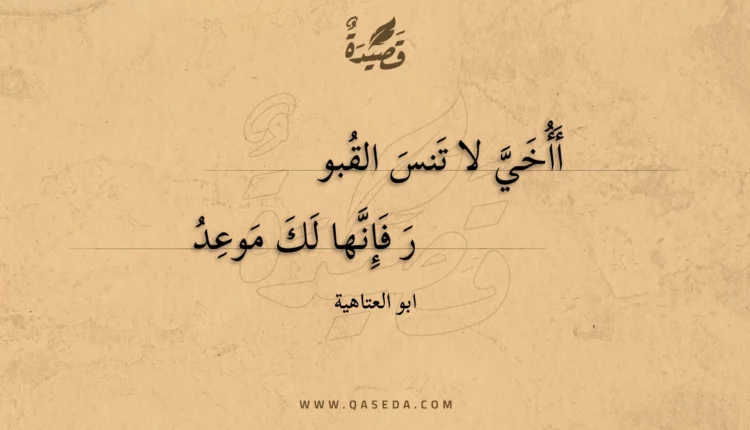 قَصِيدَةٌ
أَأُخَيَّ لا تَنسَ القُبو
رَ فَإِنَّها لَكَ مَوعِدُ
ابو العتاهية
WWW.QASEDA.COM